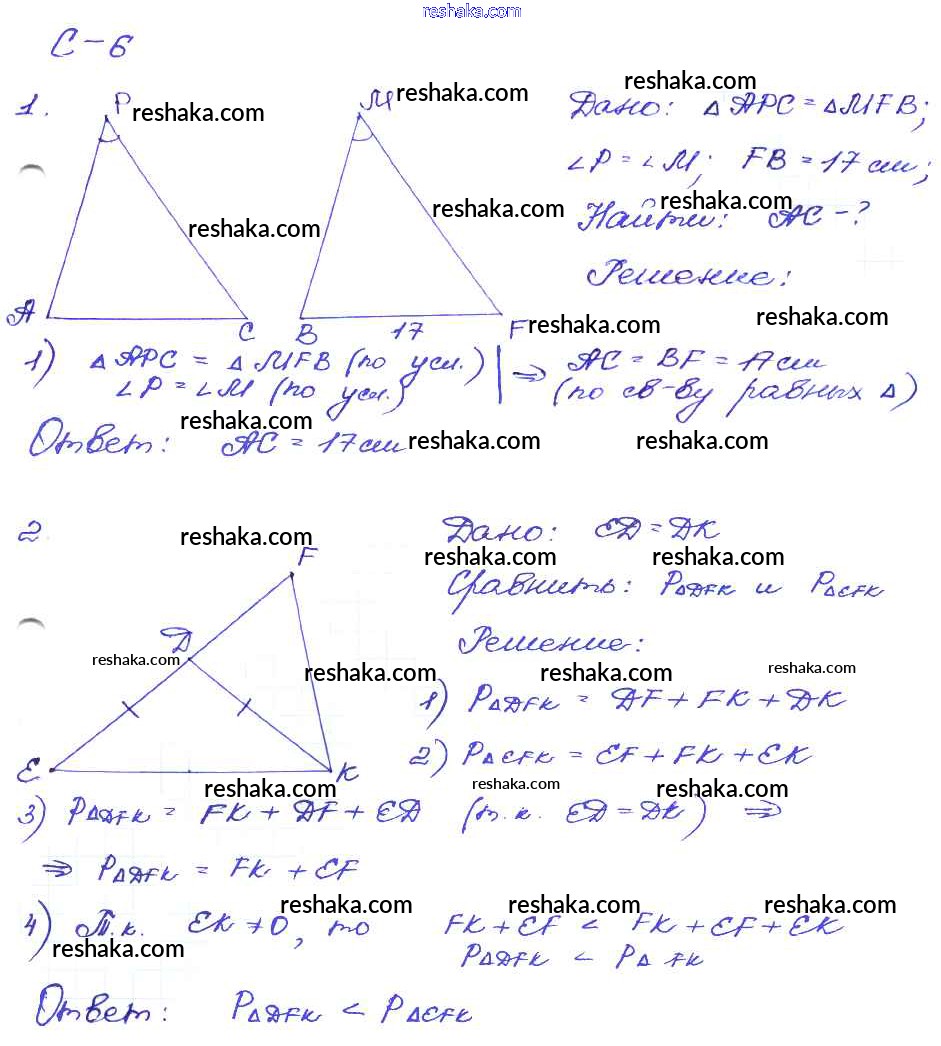 reshaka.com
С-6
reshaka.com
1. P reshaka.com M reshaka.com Дано: △APC = △MFB;
∠P = ∠M; FB = 17 см;
reshaka.com reshaka.com reshaka.com
Найти: AC - ?
Решение:
A C B 17 F reshaka.com reshaka.com
1) △APC = △MFB (по усл.) ⇒ AC = BF = 17 см
∠P = ∠M (по усл.) (по св-ву равных △)
reshaka.com reshaka.com reshaka.com
Ответ: AC = 17 см
2. reshaka.com Дано: ED = DK
F reshaka.com reshaka.com
Сравнить: P△DFK и P△EFK
D Решение:
reshaka.com reshaka.com reshaka.com reshaka.com
1) P△DFK = DF + FK + DK
E K 2) P△EFK = EF + FK + EK
reshaka.com reshaka.com reshaka.com
3) P△DFK = FK + DF + ED (т.к. ED = DK) ⇒
⇒ P△DFK = FK + EF
reshaka.com reshaka.com reshaka.com
4) Т.к. EK ≠ 0, то FK + EF < FK + EF + EK
reshaka.com P△DFK < P△ FK
Ответ: P△DFK < P△EFK